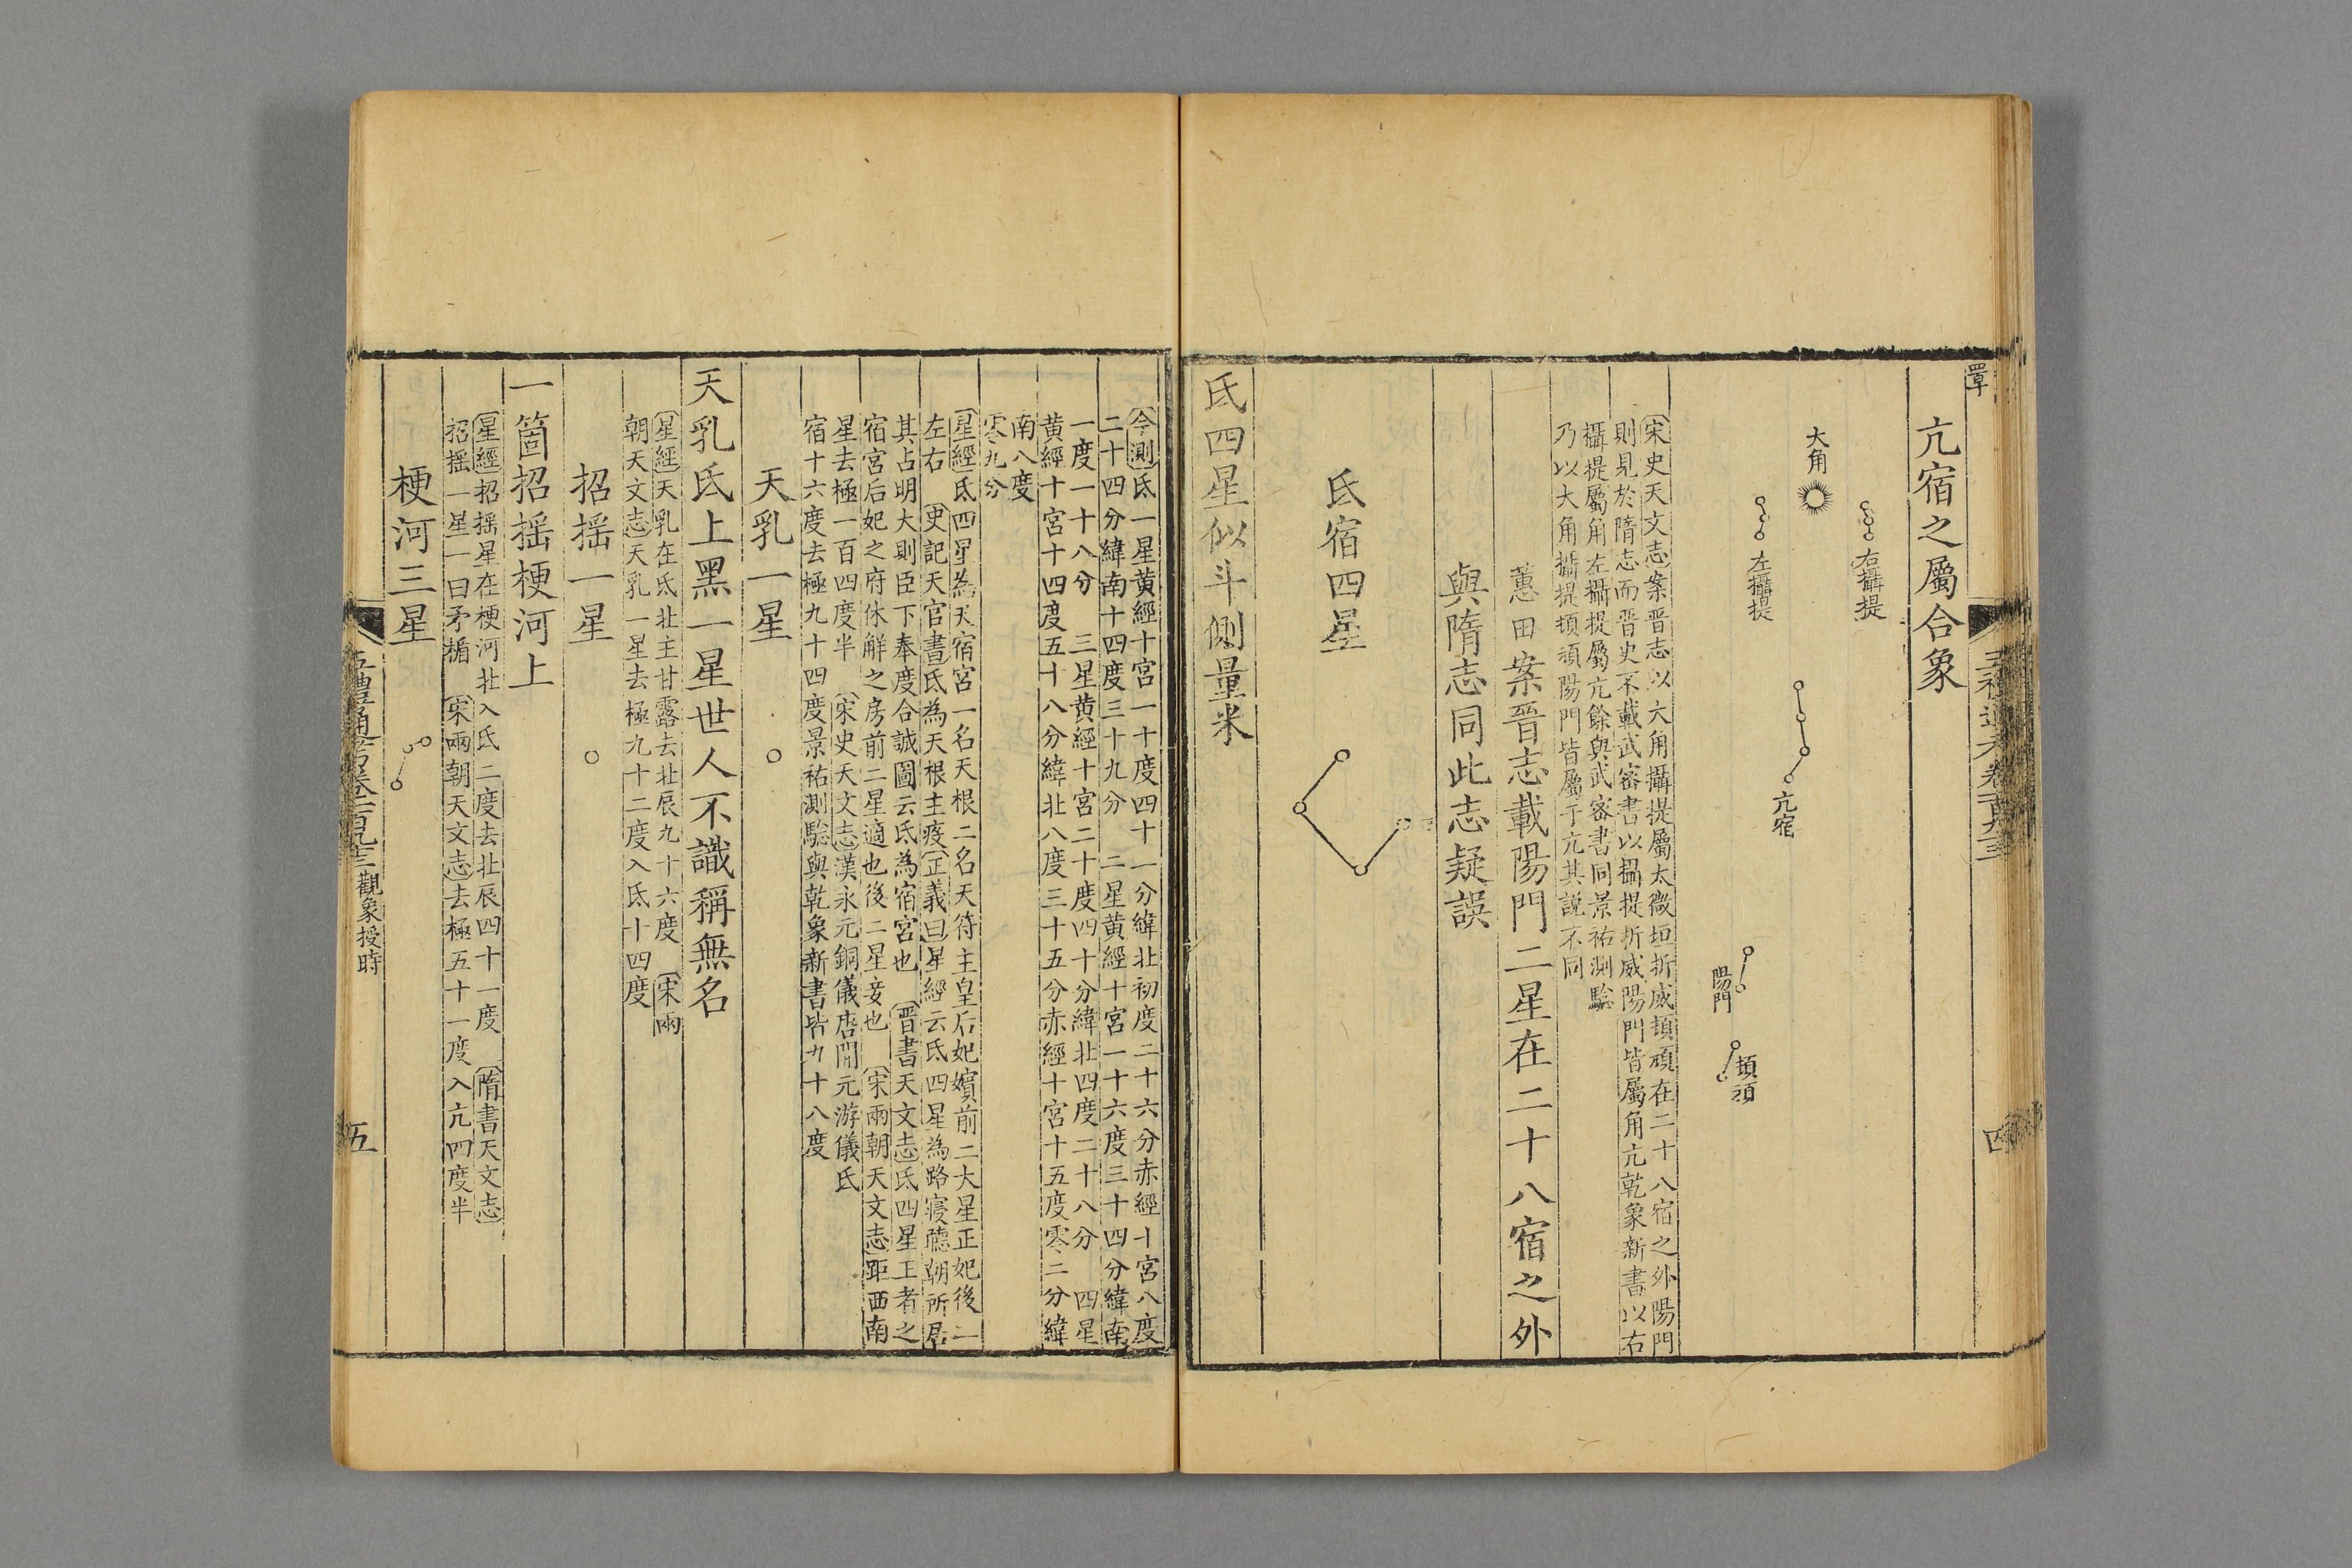 亢宿之屬合象
右攝提
大角
左攝提
亢宿
陽門
頓頑
宋史天文志案晉志以大角攝提屬太微垣折威頓頑在二十八宿之外陽門
則見於隋志而晉史不載武密書以攝提折威陽門皆屬角亢乾象新書以右
攝提屬角左攝提屬亢餘與武密書同景祐測驗
乃以大角攝提頓頑陽門皆屬于亢其説不同
蕙田案晉志載陽門二星在二十八宿之外
與隋志同此志疑誤
氐宿四星
氐四星似斗側量米
今測氐一星黄經十宮一十度四十一分緯北初度二十六分赤經十宮八度
二十四分緯南十四度三十九分　二星黄經十宮一十六度三十四分緯南
一度一十八分　三星黄經十宮二十度四十分緯北四度二十八分　四星
黄經十宮十四度五十八分緯北八度三十五分赤經十宮十五度零二分緯
南八度
零九分
星經氐四星為天宿宮一名天根二名天符主皇后妃嬪前二大星正妃後二
左右　史記天官書氐為天根主疫正義曰星經云氐四星為路寢聽朝所居
其占明大則臣下奉度合誠圖云氐為宿宮也　晋書天文志氐四星王者之
宿宮后妃之府休解之房前二星適也後二星妾也　宋兩朝天文志距西南
星去極一百四度半　宋史天文志漢永元銅儀唐開元游儀氐
宿十六度去極九十四度景祐測驗與乾象新書皆九十八度
天乳一星
天乳氐上黑一星世人不識稱無名
星經天乳在氐北主甘露去北辰九十六度　宋兩
朝天文志天乳一星去極九十二度入氐十四度
招摇一星
一箇招摇梗河上
星經招摇星在梗河北入氐二度去北辰四十一度　隋書天文志
招摇一星一曰矛楯　宋兩朝天文志去極五十一度入亢四度半
梗河三星
五禮通考卷一百九十三　觀象授時
五